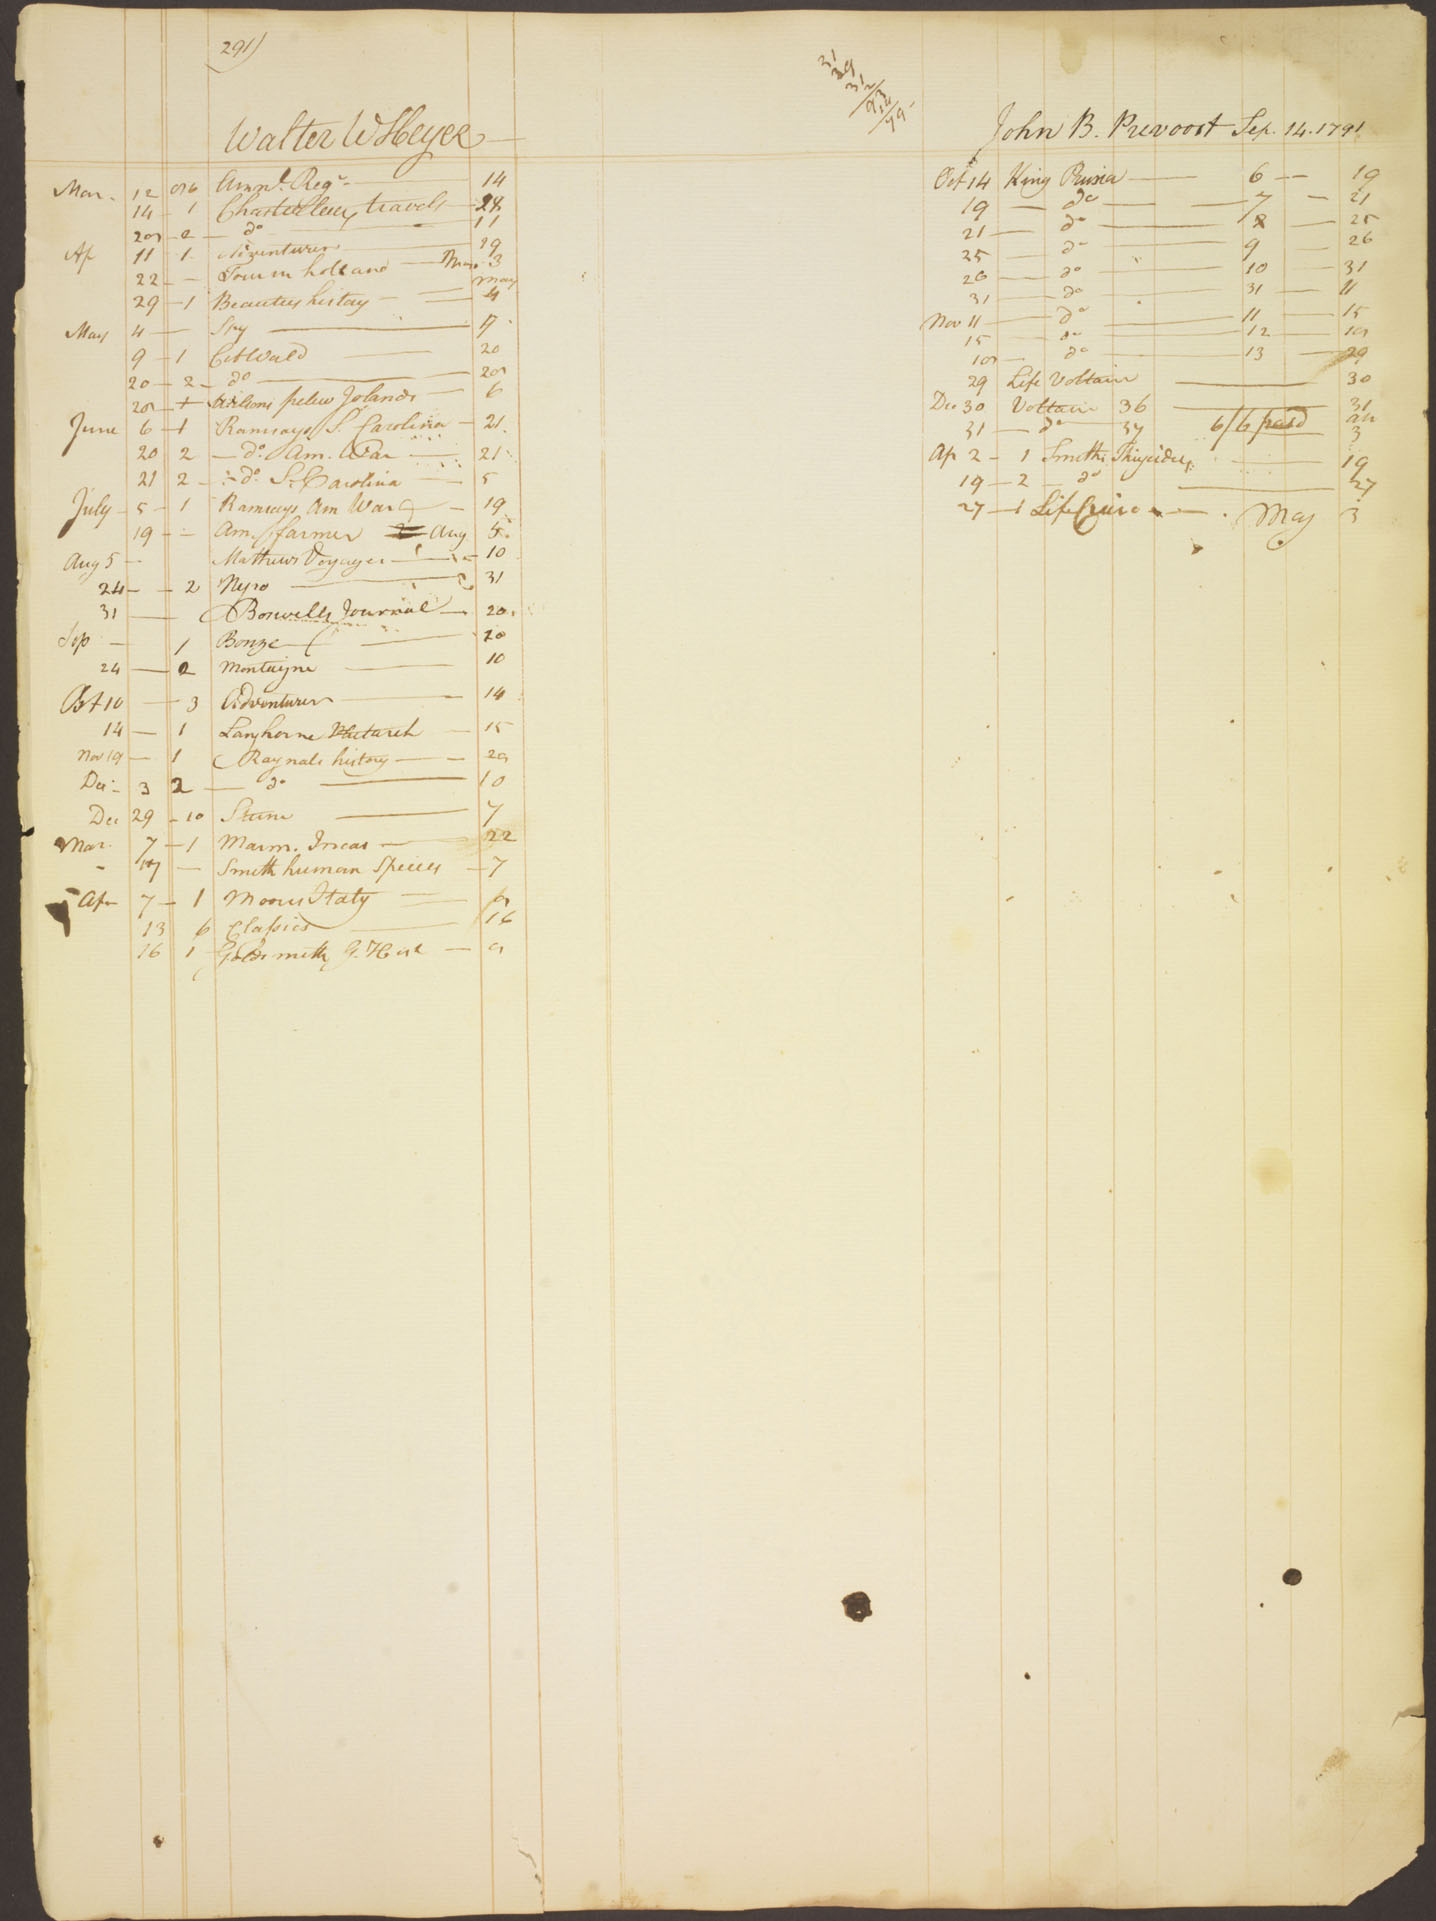 291)
Walter W Heyer
Mar. 12 Annl. Regr. 14
14 1 Chastelleux travels 28
2 do 11
Ap 11 1 Adventurer 19
22 Tour in holland May 3
may
29 1 Beauties history 4
May 4 Spy 9
9 1 20
20 2 do
Wilsons pelew Islands 6
June 6 1 Ramsays S. Carolina 21
20 2 do. Am. War 21
21 2 do. S. Carolina 5
July 5 1 Ramsays Am War 19
19 Am. farmer Aug 5
Aug 5 Mathews Voyages 10
24 2 Negro 31
31 Boswells Journal 20
Sep 1 Bonze 20
24 2 Montaigne 10
Oct 10 3 Adventurer 14
14 1 Langhorne Plutarch 15
Nov 19 1 Raynals history
Dec 3 2 do 10
Dec 29 10 7
Mar 7 1 Marm. Incas 22
17 Smith human Species 7
Ap 7 1 Moores Italy
13 6 Classics 16
16 1 Goldsmith
31
39
31
John B. Prevoost Sep. 14. 1791
Oct 14 King Prusia 6 19
19 do 7 21
21 do 8 25
25 do 9 26
26 do 10 31
31 do 31 11
Nov 11 do 11 15
15 do 12
do 13 29
29 Life Voltair 30
Dec 30 Voltair 36 31
31 do 37 6/6 paid
3
Ap 2 1 Smiths Thucidides 19
19 2 do 27
27 1 Life May 3